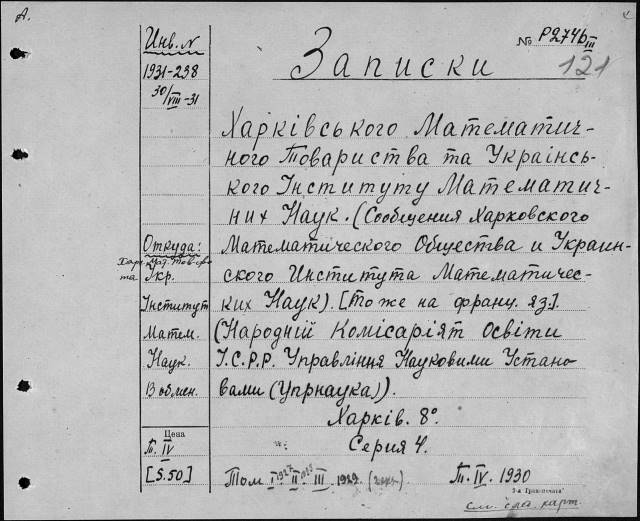 А.
№ P274b III
121
Записки
Инв. N
1931-238
30/VIII-31
Харківського Математич-
ного Товариства та Украінсь-
кого Інституту Математич-
них Наук. (Сообщения Харковского
Математического Общества и Украин-
ского Института Математичес-
ких Наук). [То же на франц. яз.].
(Народній Комісаріят Освіти
У.С.Р.Р. Управління Науковими Устано-
вами (Упрнаука)).
Харків. 8°
Серия 4.
Откуда:
та Укр.
Інститут
Матем.
Наук.
В обмен.
Цена
Т. IV
[5.50]
Том I 1927 II 1928 III 1929
Т. IV. 1930
см. сла. карт.